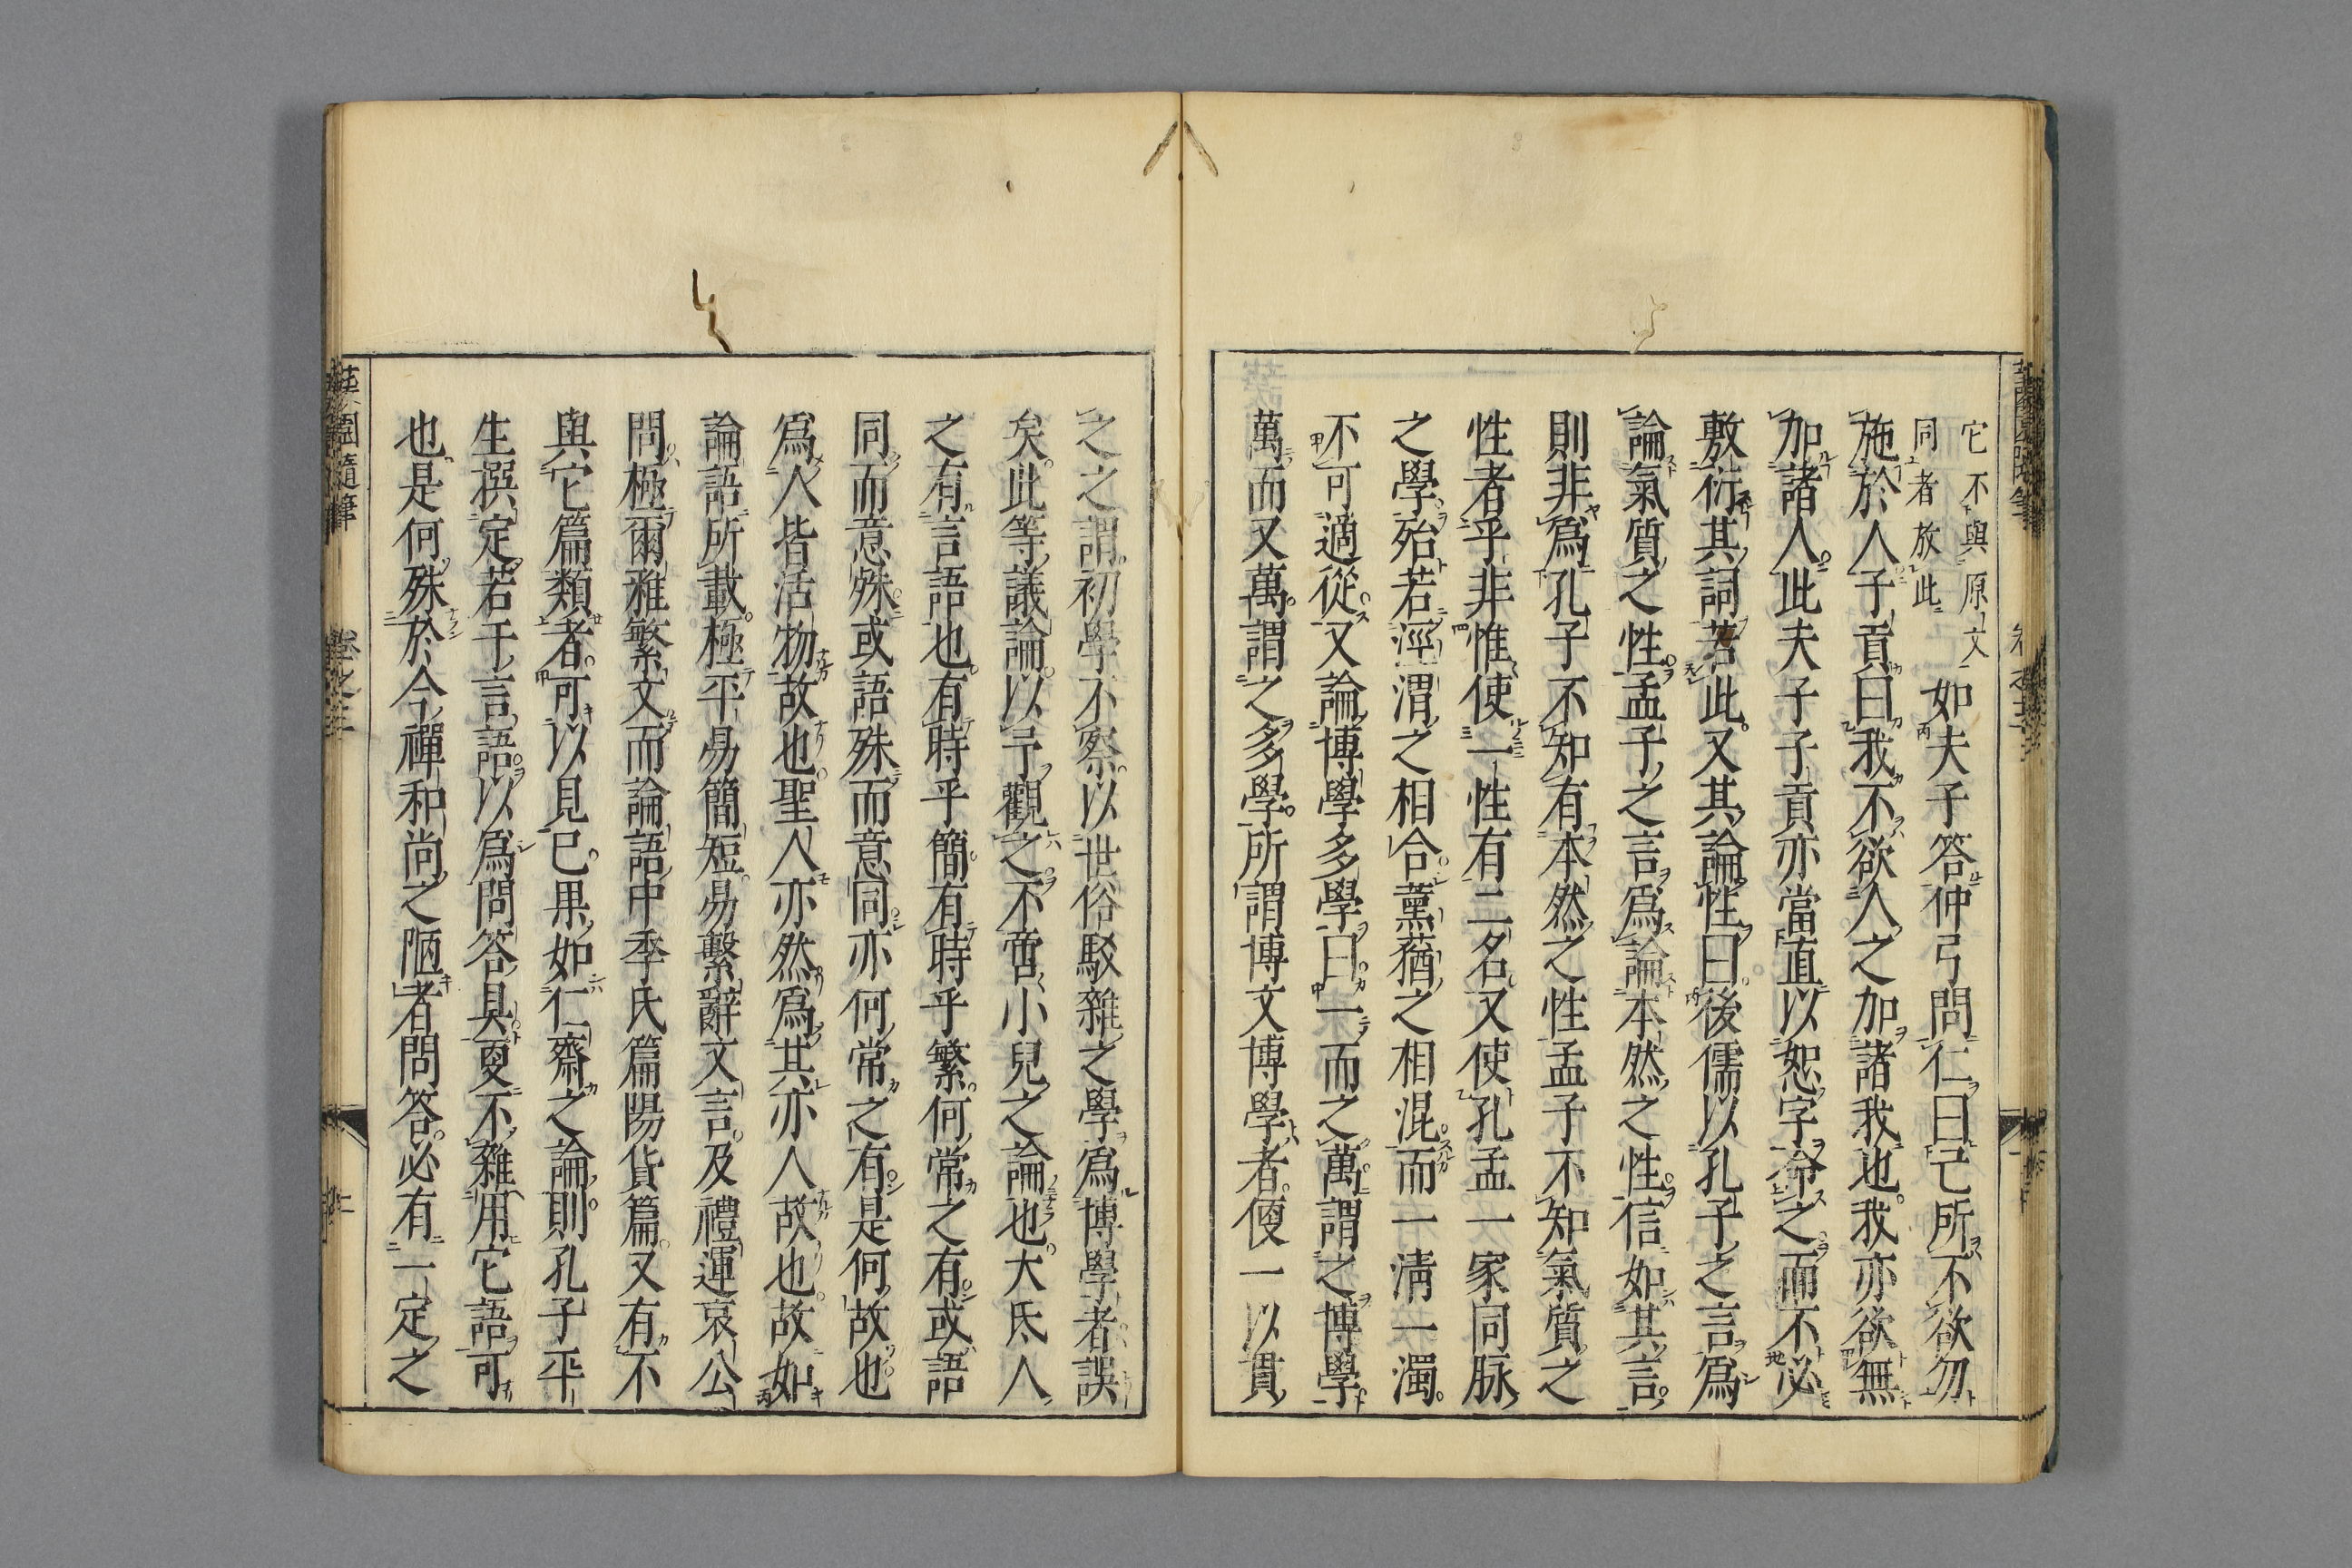 它不與原文
同者放此
如夫子答仲弓問仁曰己所不欲勿
施於人子貢曰我不欲人之加諸我也我亦欲無
加諸人此夫子子貢亦當直以恕字命之而不必
敷衍其詞若此又其論性曰後儒以孔子之言爲
論氣質之性孟子之言爲論本然之性信如其言
則非爲孔子不知有本然之性孟子不知氣質之
性者乎非惟使一性有二名又使孔孟一家同脉
之學殆若涇渭之相合薰蕕之相混而一淸一濁
不可適從又論博學多學曰一而之萬謂之博學
萬而又萬謂之多學所謂博文博學者便一以貫
之之謂初學不察以世俗駁雜之學爲博學者誤
矣此等議論以予觀之不啻小兒之論也大氐人
之有言語也有時乎簡有時乎繁何常之有或語
同而意殊或語殊而意同亦何常之有是何故也
爲人皆活物故也聖人亦然爲其亦人故也故如
論語所載極平易簡短易繫辭文言及禮運哀公
問極爾雅繁文而論語中季氏篇陽貨篇又有不
與它篇類者可以見已果如仁齋之論則孔子平
生撰定若干言語以爲問答具更不雜用它語可
也是何殊於今禪和尚之陋者問答必有一定之
園隨筆
卷之三
二